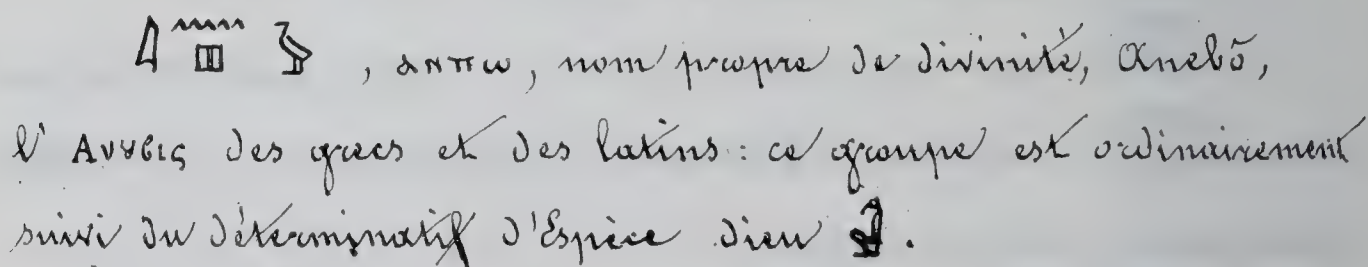 𓇋𓈖𓊪𓅱, ⲁⲛⲡⲱ, nom propre de divinité, Anebô,
l'Ανυβις des grecs et des latins : ce groupe est ordinairement
suivi du déterminatif d'Espèce dieu 𓀭.